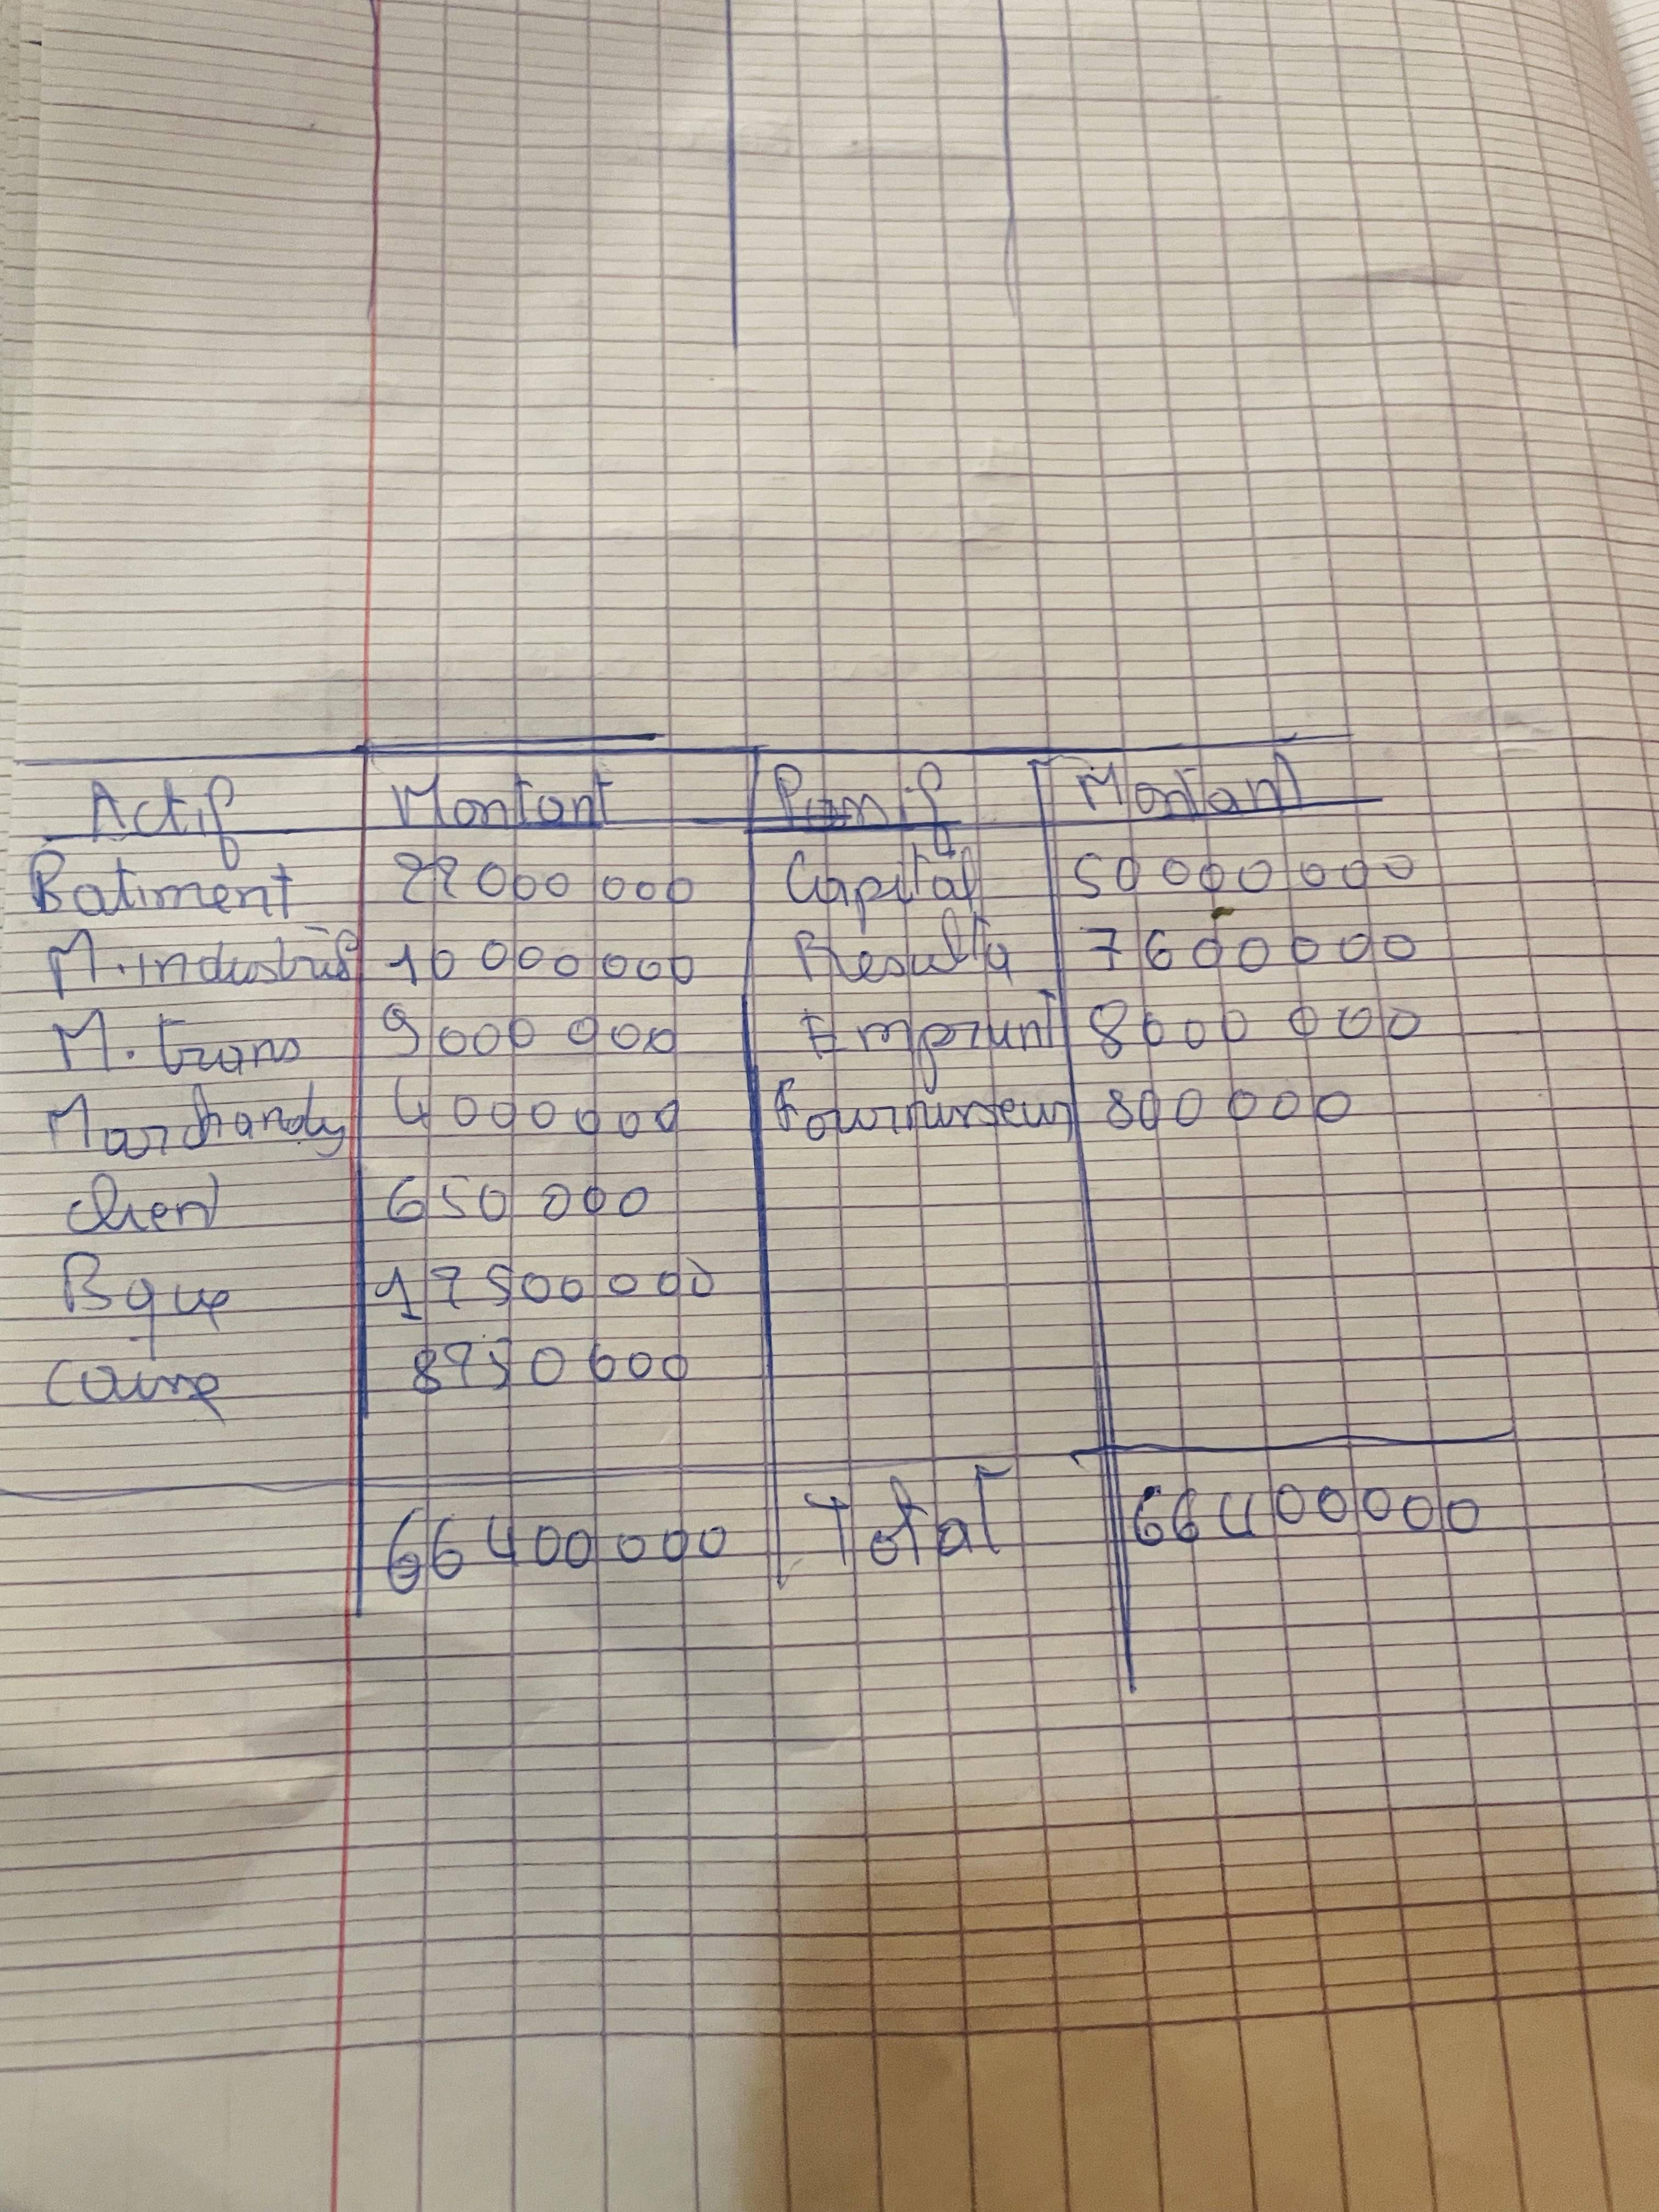 Actif Montant Passif Montant
Batiment 22000 000 Capital 50 000 000
M.industriel 10 000 000 Resulta 7600000
M. trans 9000 000 Emprunt 8000 000
Marchandi 4000000 Fournisseur 800000
client 650 000
Bque 12500000
caisse 8250000
66400000 Total 66400000